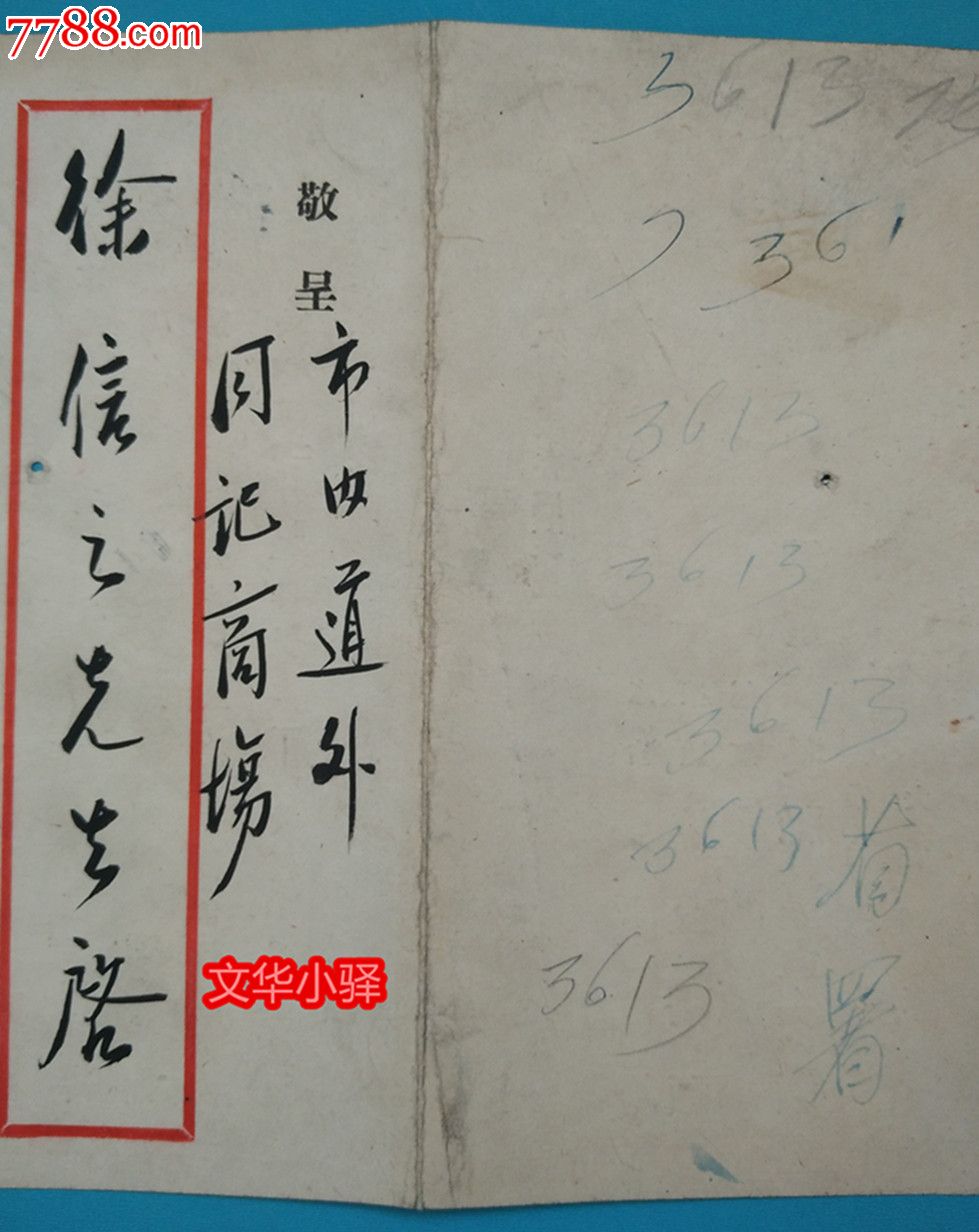 7788.com
敬呈
市内道外
同记商場
徐信之先生啓
文华小驿
3613
361
3613
3613
3613
3613
省署
3613